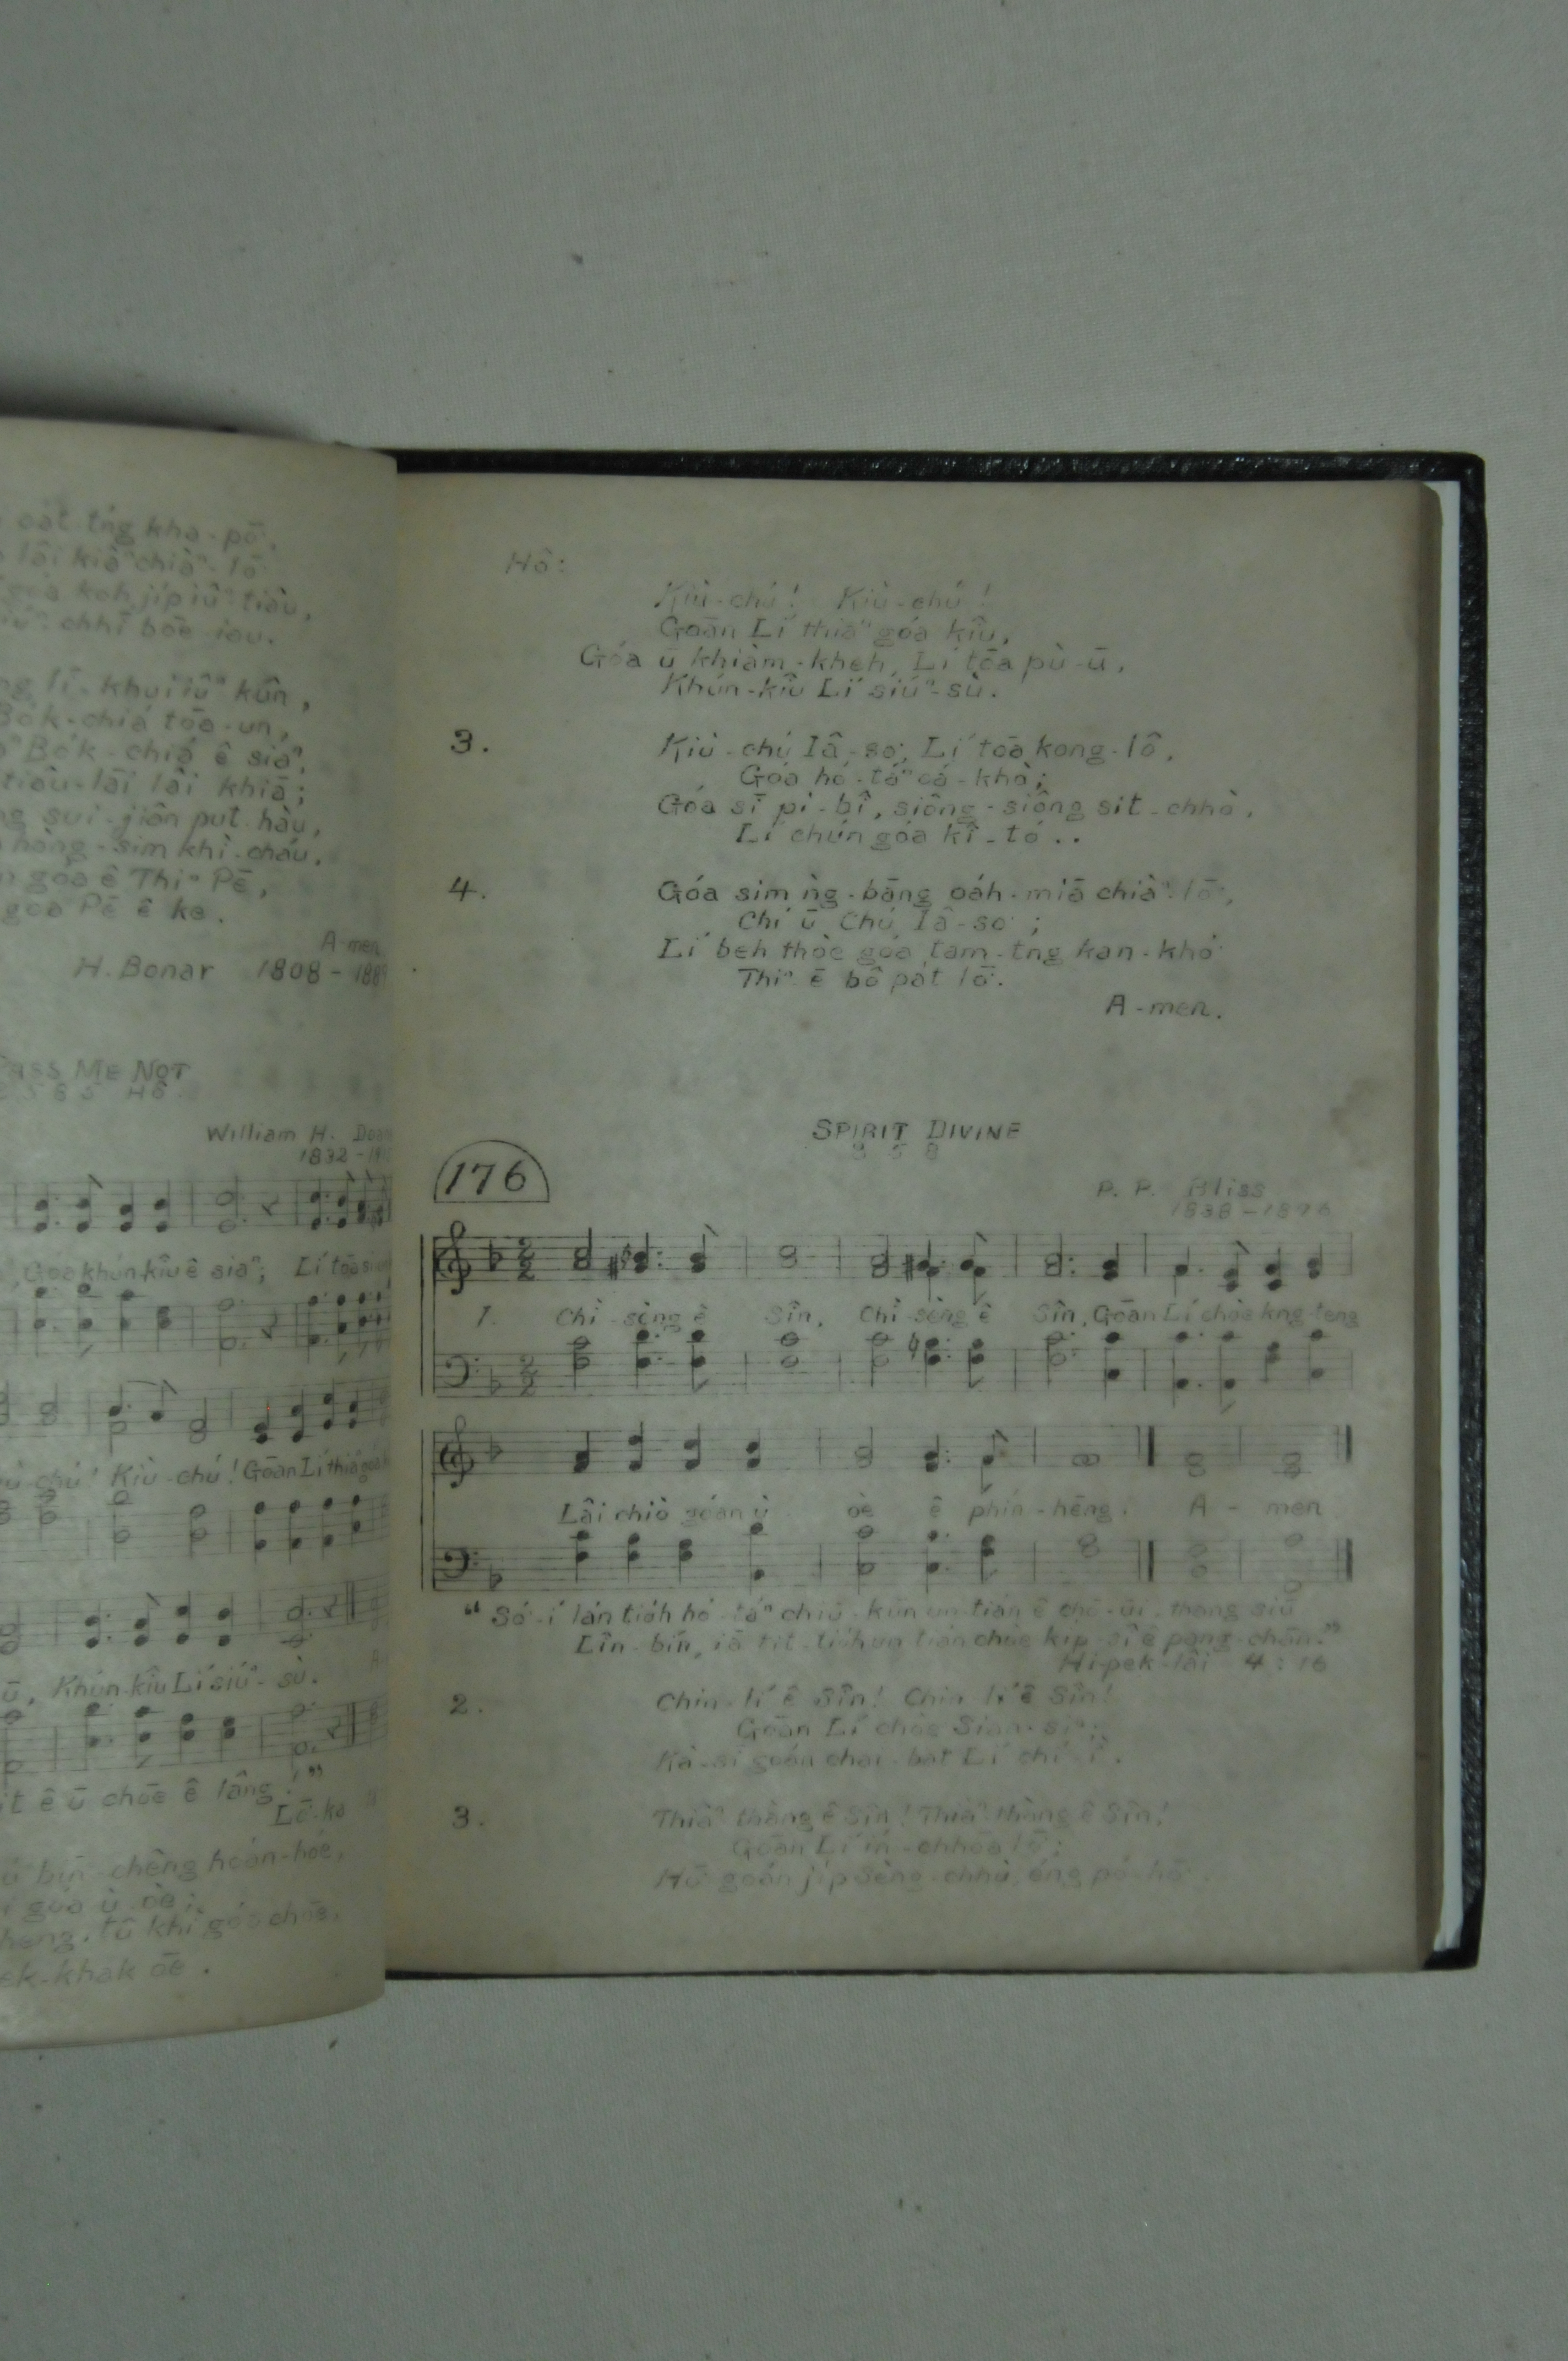 oat-tńg kha-pō͘,
lâi kiâⁿ chiàⁿ-lō͘
góa koh ji̍p iûⁿ-tiâu,
chhī bōe iau.
lī-khui iûⁿ kûn,
Bo̍k-chiá tōa-un,
Bo̍k-chiá ê siaⁿ,
tiàu-lāi lâi khiā;
sui-jiân put-hàu,
hòng-sim khì-cháu,
góa ê Thiⁿ Pē,
góa Pē ê ke.
A-men
H. Bonar 1808 –
PASS ME NOT
William H.
1832 –
Góa khún-kiû ê siaⁿ; Lí tōa
Kiù-chú! Goān Lí thiaⁿ góa
ū, Khún-kiû Lí siúⁿ-sù.
ê ū chōe ê lâng."
bīn-chêng hoán-hóe,
góa ù-òe;
tû khì góa chōe,
ek-khak ōe.
Hô:
Kiù-chú! Kiù-chú!
Goān Lí thiaⁿ góa kiû,
Góa ū khiàm-kheh, Lí tōa pù-ū,
Khún-kiû Lí siúⁿ-sù.
3. Kiù-chú Iâ-so͘, Lí tōa kong-lô,
Góa hó-táⁿ oá-khò;
Góa sī pi-bî, siông-siông sit-chhò,
Lí chún góa kî-tó..
4. Góa sim ǹg-bāng oa̍h-miā chiàⁿ-lō͘,
Chí ū Chú Iâ-so͘;
Lí beh thòe góa tam-tng kan-khó͘
Thiⁿ-ē bô pa̍t lō͘.
A-men.
SPIRIT DIVINE
8 5 8
176
P. P. Bliss
1838–1876
1. Chì-sèng ê Sîn, Chì-sèng ê Sîn, Goān Lí chòe kng-teng
Lâi chiò goán ù-òe ê phín-hēng. A-men
"Só͘-í lán tio̍h hó-táⁿ chiū-kūn un-tián ê chō-ūi, thang siū
Lîn-bín, iā tit-tio̍h un-tián chòe ki̍p-sî ê pang-chān."
Hi-pek-lâi 4:16
2. Chin-lí ê Sîn! Chin-lí ê Sîn!
Goān Lí chòe Sian-siⁿ;
Kà-sī goán chai-bat Lí chí-ì.
3. Thiàⁿ-thàng ê Sîn! Thiàⁿ-thàng ê Sîn!
Goān Lí ín-chhōa lō͘;
Hō͘ goán ji̍p Sèng-chhù éng pó-hō͘.